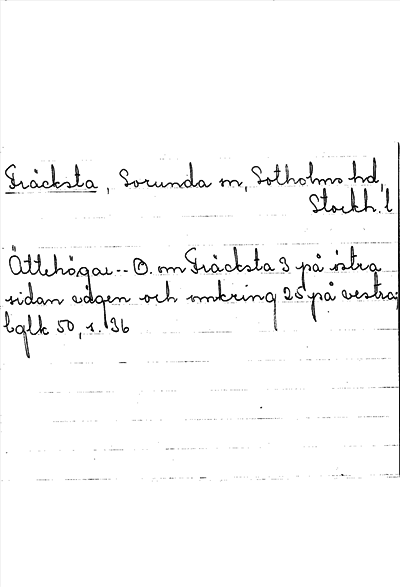 Fräcksta, Sorunda sn, Sotholms hd,
Stockh. l
Ättehögar -- Ö. om Fräcksta 3 på östra
sidan vägen och omkring 25 på vestra;
bglk 50, s. 36